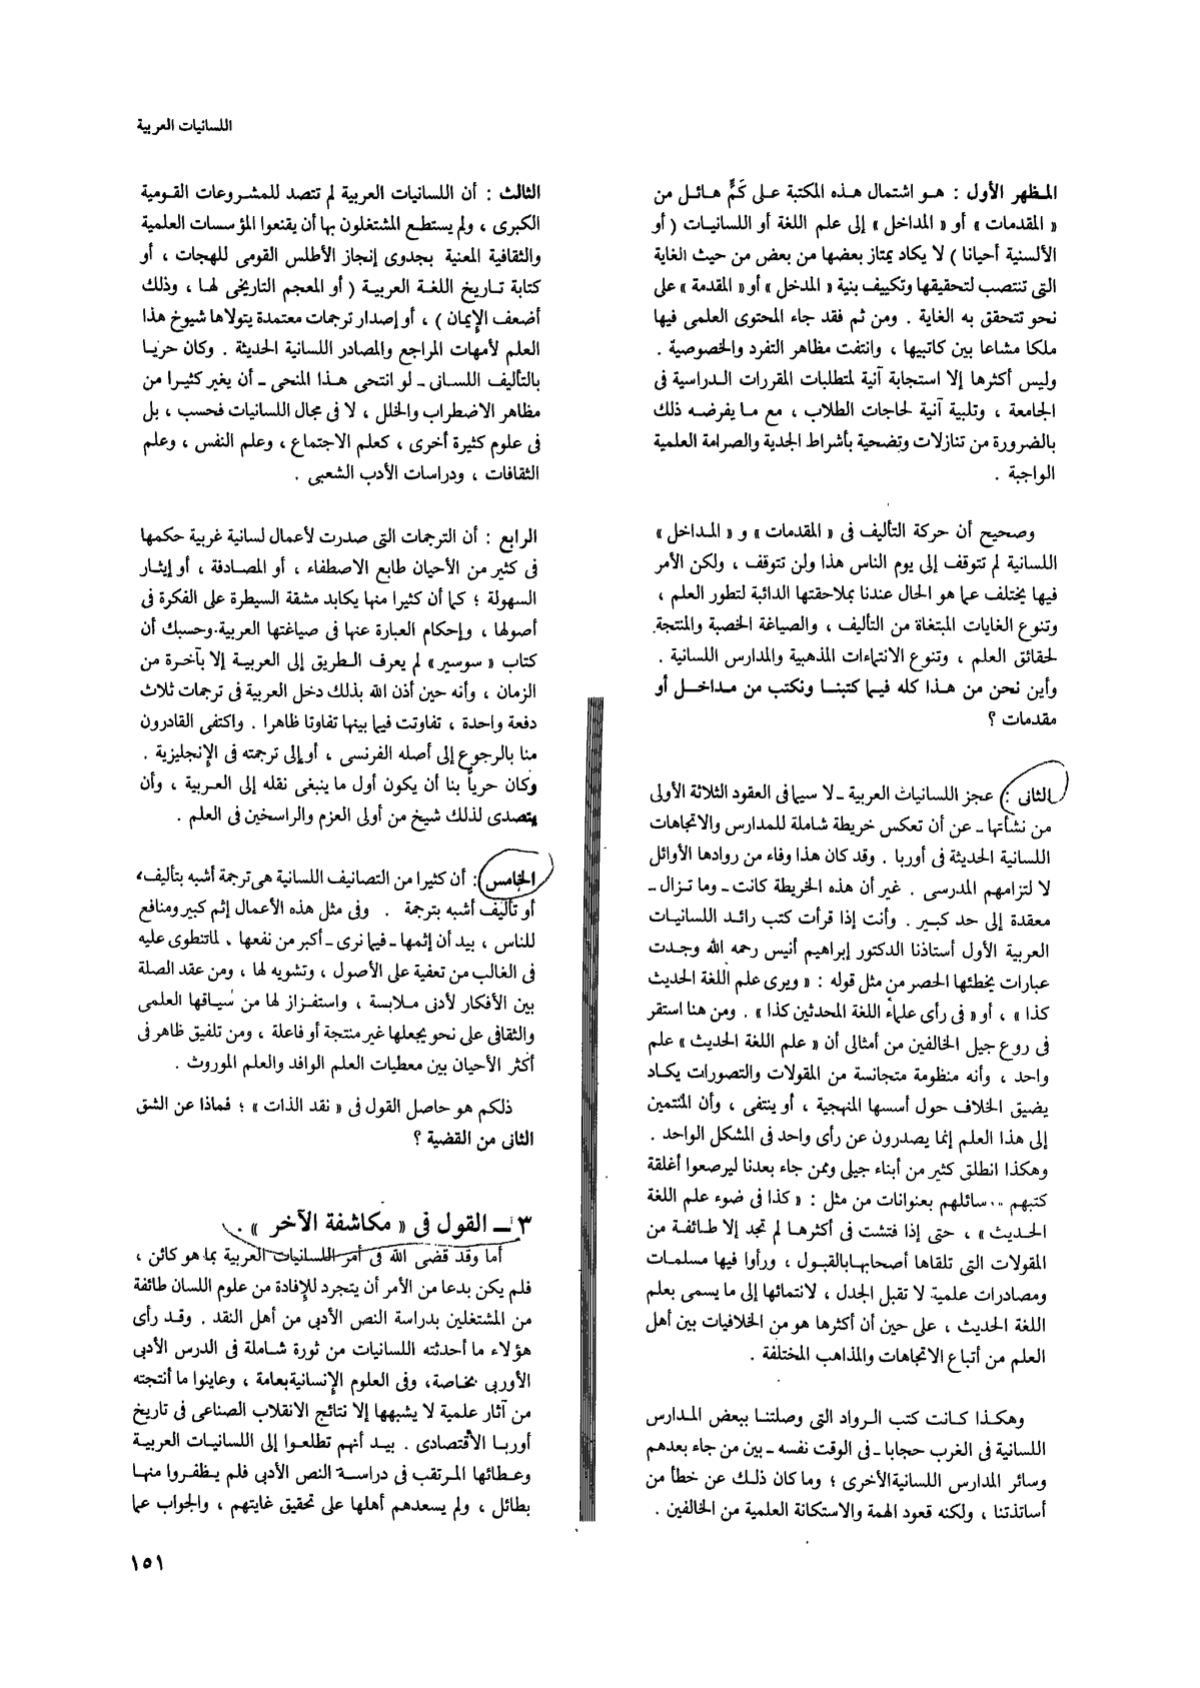 اللسانيات العربية
المظهر الأول : هو اشتمال هذه المكتبة على كَمٍّ هائل من
« المقدمات » أو « المداخل » إلى علم اللغة أو اللسانيات ( أو
الألسنية أحيانا ) لا يكاد يمتاز بعضها من بعض من حيث الغاية
التى تنتصب لتحقيقها وتكييف بنية « المدخل » أو « المقدمة » على
نحو تتحقق به الغاية . ومن ثم فقد جاء المحتوى العلمى فيها
ملكا مشاعا بين كاتبيها ، وانتفت مظاهر التفرد والخصوصية .
وليس أكثرها إلا استجابة آنية لمتطلبات المقررات الدراسية فى
الجامعة ، وتلبية آنية لحاجات الطلاب ، مع ما يفرضه ذلك
بالضرورة من تنازلات وتضحية بأشراط الجدية والصرامة العلمية
الواجبة .
وصحيح أن حركة التأليف فى « المقدمات » و « المداخل »
اللسانية لم تتوقف إلى يوم الناس هذا ولن تتوقف ، ولكن الأمر
فيها يختلف عما هو الحال عندنا بملاحقتها الدائبة لتطور العلم ،
وتنوع الغايات المبتغاة من التأليف ، والصياغة الخصبة والمنتجة
لحقائق العلم ، وتنوع الانتماءات المذهبية والمدارس اللسانية .
وأين نحن من هذا كله فيما كتبنا ونكتب من مداخل أو
مقدمات ؟
الثانى : عجز اللسانيات العربية ـ لا سيما فى العقود الثلاثة الأولى
من نشأتها ـ عن أن تعكس خريطة شاملة للمدارس والاتجاهات
اللسانية الحديثة فى أوربا . وقد كان هذا وفاء من روادها الأوائل
لا لتزامهم المدرسى . غير أن هذه الخريطة كانت ـ وما تزال ـ
معقدة إلى حد كبير . وأنت إذا قرأت كتب رائد اللسانيات
العربية الأول أستاذنا الدكتور إبراهيم أنيس رحمه الله وجدت
عبارات يخطئها الحصر من مثل قوله : « ويرى علم اللغة الحديث
كذا » ، أو « فى رأى علماء اللغة المحدثين كذا » . ومن هنا استقر
فى روع جيل الخالفين من أمثالى أن « علم اللغة الحديث » علم
واحد ، وأنه منظومة متجانسة من المقولات والتصورات يكاد
يضيق الخلاف حول أسسها المنهجية ، أو ينتفى ، وأن المنتمين
إلى هذا العلم إنما يصدرون عن رأى واحد فى المشكل الواحد .
وهكذا انطلق كثير من أبناء جيلى وممن جاء بعدنا ليرصعوا أغلفة
كتبهم سائلهم بعنوانات من مثل : « كذا فى ضوء علم اللغة
الحديث » ، حتى إذا فتشت فى أكثرها لم تجد إلا طائفة من
المقولات التى تلقاها أصحابها بالقبول ، ورأوا فيها مسلمات
ومصادرات علمية لا تقبل الجدل ، لانتمائها إلى ما يسمى بعلم
اللغة الحديث ، على حين أن أكثرها هو من الخلافيات بين أهل
العلم من أتباع الاتجاهات والمذاهب المختلفة .
وهكذا كانت كتب الرواد التى وصلتنا ببعض المدارس
اللسانية فى الغرب حجابا ـ فى الوقت نفسه ـ بين من جاء بعدهم
وسائر المدارس اللسانية الأخرى ؛ وما كان ذلك عن خطأ من
أساتذتنا ، ولكنه قعود الهمة والاستكانة العلمية من الخالفين .
الثالث : أن اللسانيات العربية لم تتصد للمشروعات القومية
الكبرى ، ولم يستطع المشتغلون بها أن يقنعوا المؤسسات العلمية
والثقافية المعنية بجدوى إنجاز الأطلس القومى للهجات ، أو
كتابة تاريخ اللغة العربية ( أو المعجم التاريخى لها ، وذلك
أضعف الإيمان ) ، أو إصدار ترجمات معتمدة يتولاها شيوخ هذا
العلم لأمهات المراجع والمصادر اللسانية الحديثة . وكان حريا
بالتأليف اللسانى ـ لو انتحى هذا المنحى ـ أن يغير كثيرا من
مظاهر الاضطراب والخلل ، لا فى مجال اللسانيات فحسب ، بل
فى علوم كثيرة أخرى ، كعلم الاجتماع ، وعلم النفس ، وعلم
الثقافات ، ودراسات الأدب الشعبى .
الرابع : أن الترجمات التى صدرت لأعمال لسانية غربية حكمها
فى كثير من الأحيان طابع الاصطفاء ، أو المصادفة ، أو إيثار
السهولة ؛ كما أن كثيرا منها يكابد مشقة السيطرة على الفكرة فى
أصولها ، وإحكام العبارة عنها فى صياغتها العربية.وحسبك أن
كتاب « سوسير » لم يعرف الطريق إلى العربية إلا بآخرة من
الزمان ، وأنه حين أذن الله بذلك دخل العربية فى ترجمات ثلاث
دفعة واحدة ، تفاوتت فيما بينها تفاوتا ظاهرا . واكتفى القادرون
منا بالرجوع إلى أصله الفرنسى ، أو إلى ترجمته فى الإنجليزية .
وكان حرياً بنا أن يكون أول ما ينبغى نقله إلى العربية ، وأن
يتصدى لذلك شيخ من أولى العزم والراسخين فى العلم .
الخامس : أن كثيرا من التصانيف اللسانية هى ترجمة أشبه بتأليف،
أو تأليف أشبه بترجمة . وفى مثل هذه الأعمال إثم كبير ومنافع
للناس ، بيد أن إثمها ـ فيما نرى ـ أكبر من نفعها ، لما تنطوى عليه
فى الغالب من تعفية على الأصول ، وتشويه لها ، ومن عقد الصلة
بين الأفكار لأدنى ملابسة ، واستفزاز لها من سياقها العلمى
والثقافى على نحو يجعلها غير منتجة أو فاعلة ، ومن تلفيق ظاهر فى
أكثر الأحيان بين معطيات العلم الوافد والعلم الموروث .
ذلكم هو حاصل القول فى « نقد الذات » ؛ فماذا عن الشق
الثانى من القضية ؟
٣ ـ القول فى « مكاشفة الآخر » .
أما وقد قضى الله فى أمر اللسانيات العربية بما هو كائن ،
فلم يكن بدعا من الأمر أن يتجرد للإفادة من علوم اللسان طائفة
من المشتغلين بدراسة النص الأدبى من أهل النقد . وقد رأى
هؤلاء ما أحدثته اللسانيات من ثورة شاملة فى الدرس الأدبى
الأوربى بخاصة، وفى العلوم الإنسانية بعامة ، وعاينوا ما أنتجته
من آثار علمية لا يشبهها إلا نتائج الانقلاب الصناعى فى تاريخ
أوربا الاقتصادى . بيد أنهم تطلعوا إلى اللسانيات العربية
وعطائها المرتقب فى دراسة النص الأدبى فلم يظفروا منها
بطائل ، ولم يسعدهم أهلها على تحقيق غايتهم ، والجواب عما
١٥١